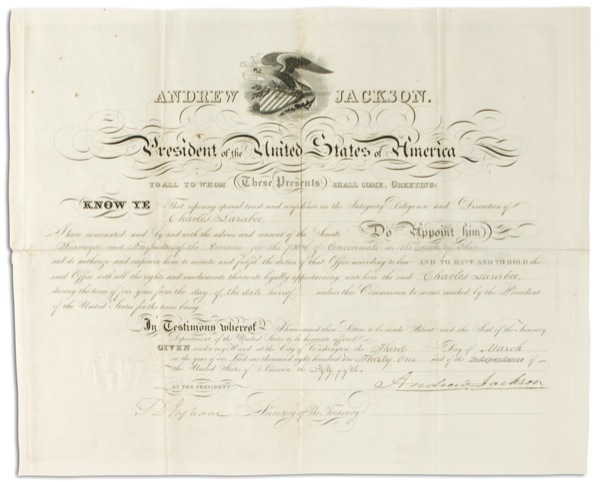 ANDREW JACKSON.
President of the United States of America
TO ALL TO WHOM These Presents SHALL COME, GREETING:
KNOW YE That reposing special trust and confidence in the Integrity Diligence and Discretion of
Charles Larabee
I have nominated and by and with the advice and consent of the Senate Do Appoint him
Surveyor and Inspector of the Revenue for the Port of Cincinnati in the State of Ohio
and do authorize and empower him to execute and fulfil the duties of that Office according to law AND TO HAVE AND TO HOLD the
said Office with all the rights and emoluments thereunto legally appertaining unto him the said Charles Larabee
during the term of four years from the day of the date hereof unless this Commission be sooner revoked by the President
of the United States for the time being.
In Testimony whereof I have caused these Letters to be made Patent, and the Seal of the Treasury
Department of the United States to be hereunto affixed
GIVEN under my Hand at the City of Washington the Third Day of March
in the year of our Lord one thousand eight hundred and Thirty One and of the Independence of
the United States of America the Fifty fifth.
BY THE PRESIDENT Andrew Jackson
Ingham Secretary of the Treasury